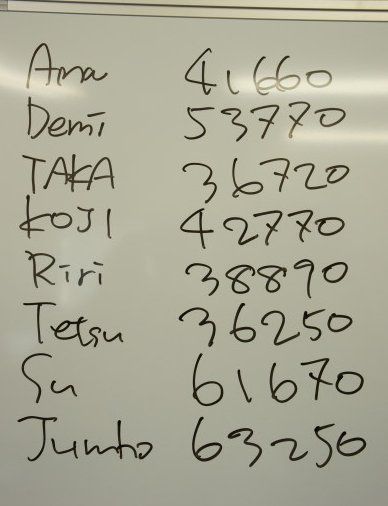 Ama 41660
Demi 53770
TAKA 36720
KOJI 42770
Riri 38890
Tetsu 36250
Su 61670
Jumbo 63250